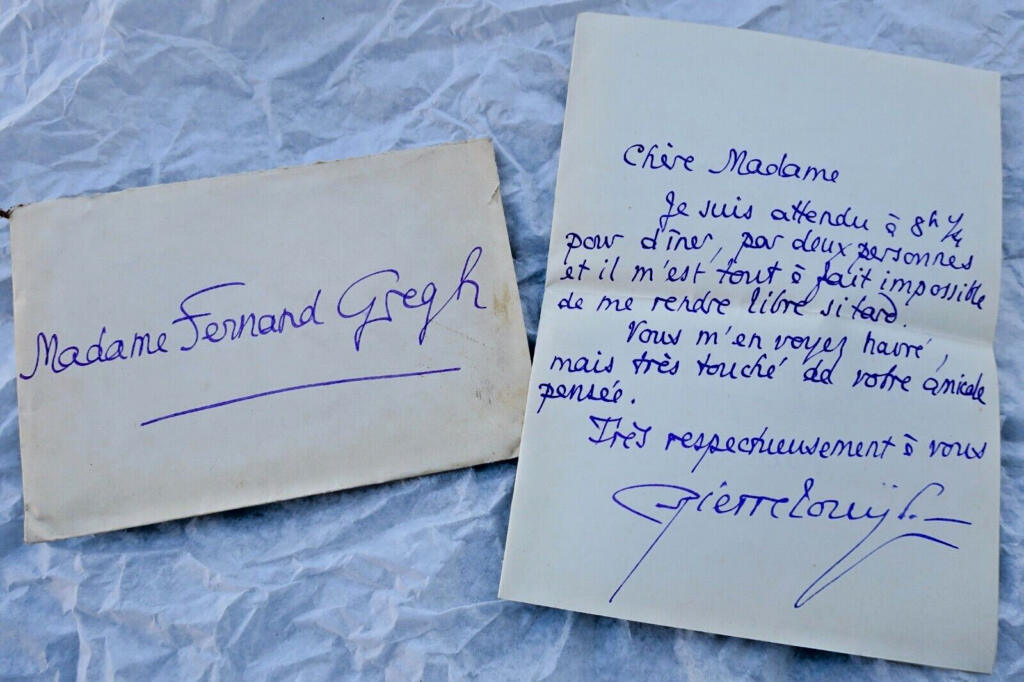 Madame Fernand Gregh
Chère Madame
Je suis attendu à 8h 1/4
pour dîner, par deux personnes
et il m'est tout à fait impossible
de me rendre libre si tard.
Vous m'en voyez navré,
mais très touché de votre amicale
pensée.
Très respectueusement à vous
Pierre Louÿs